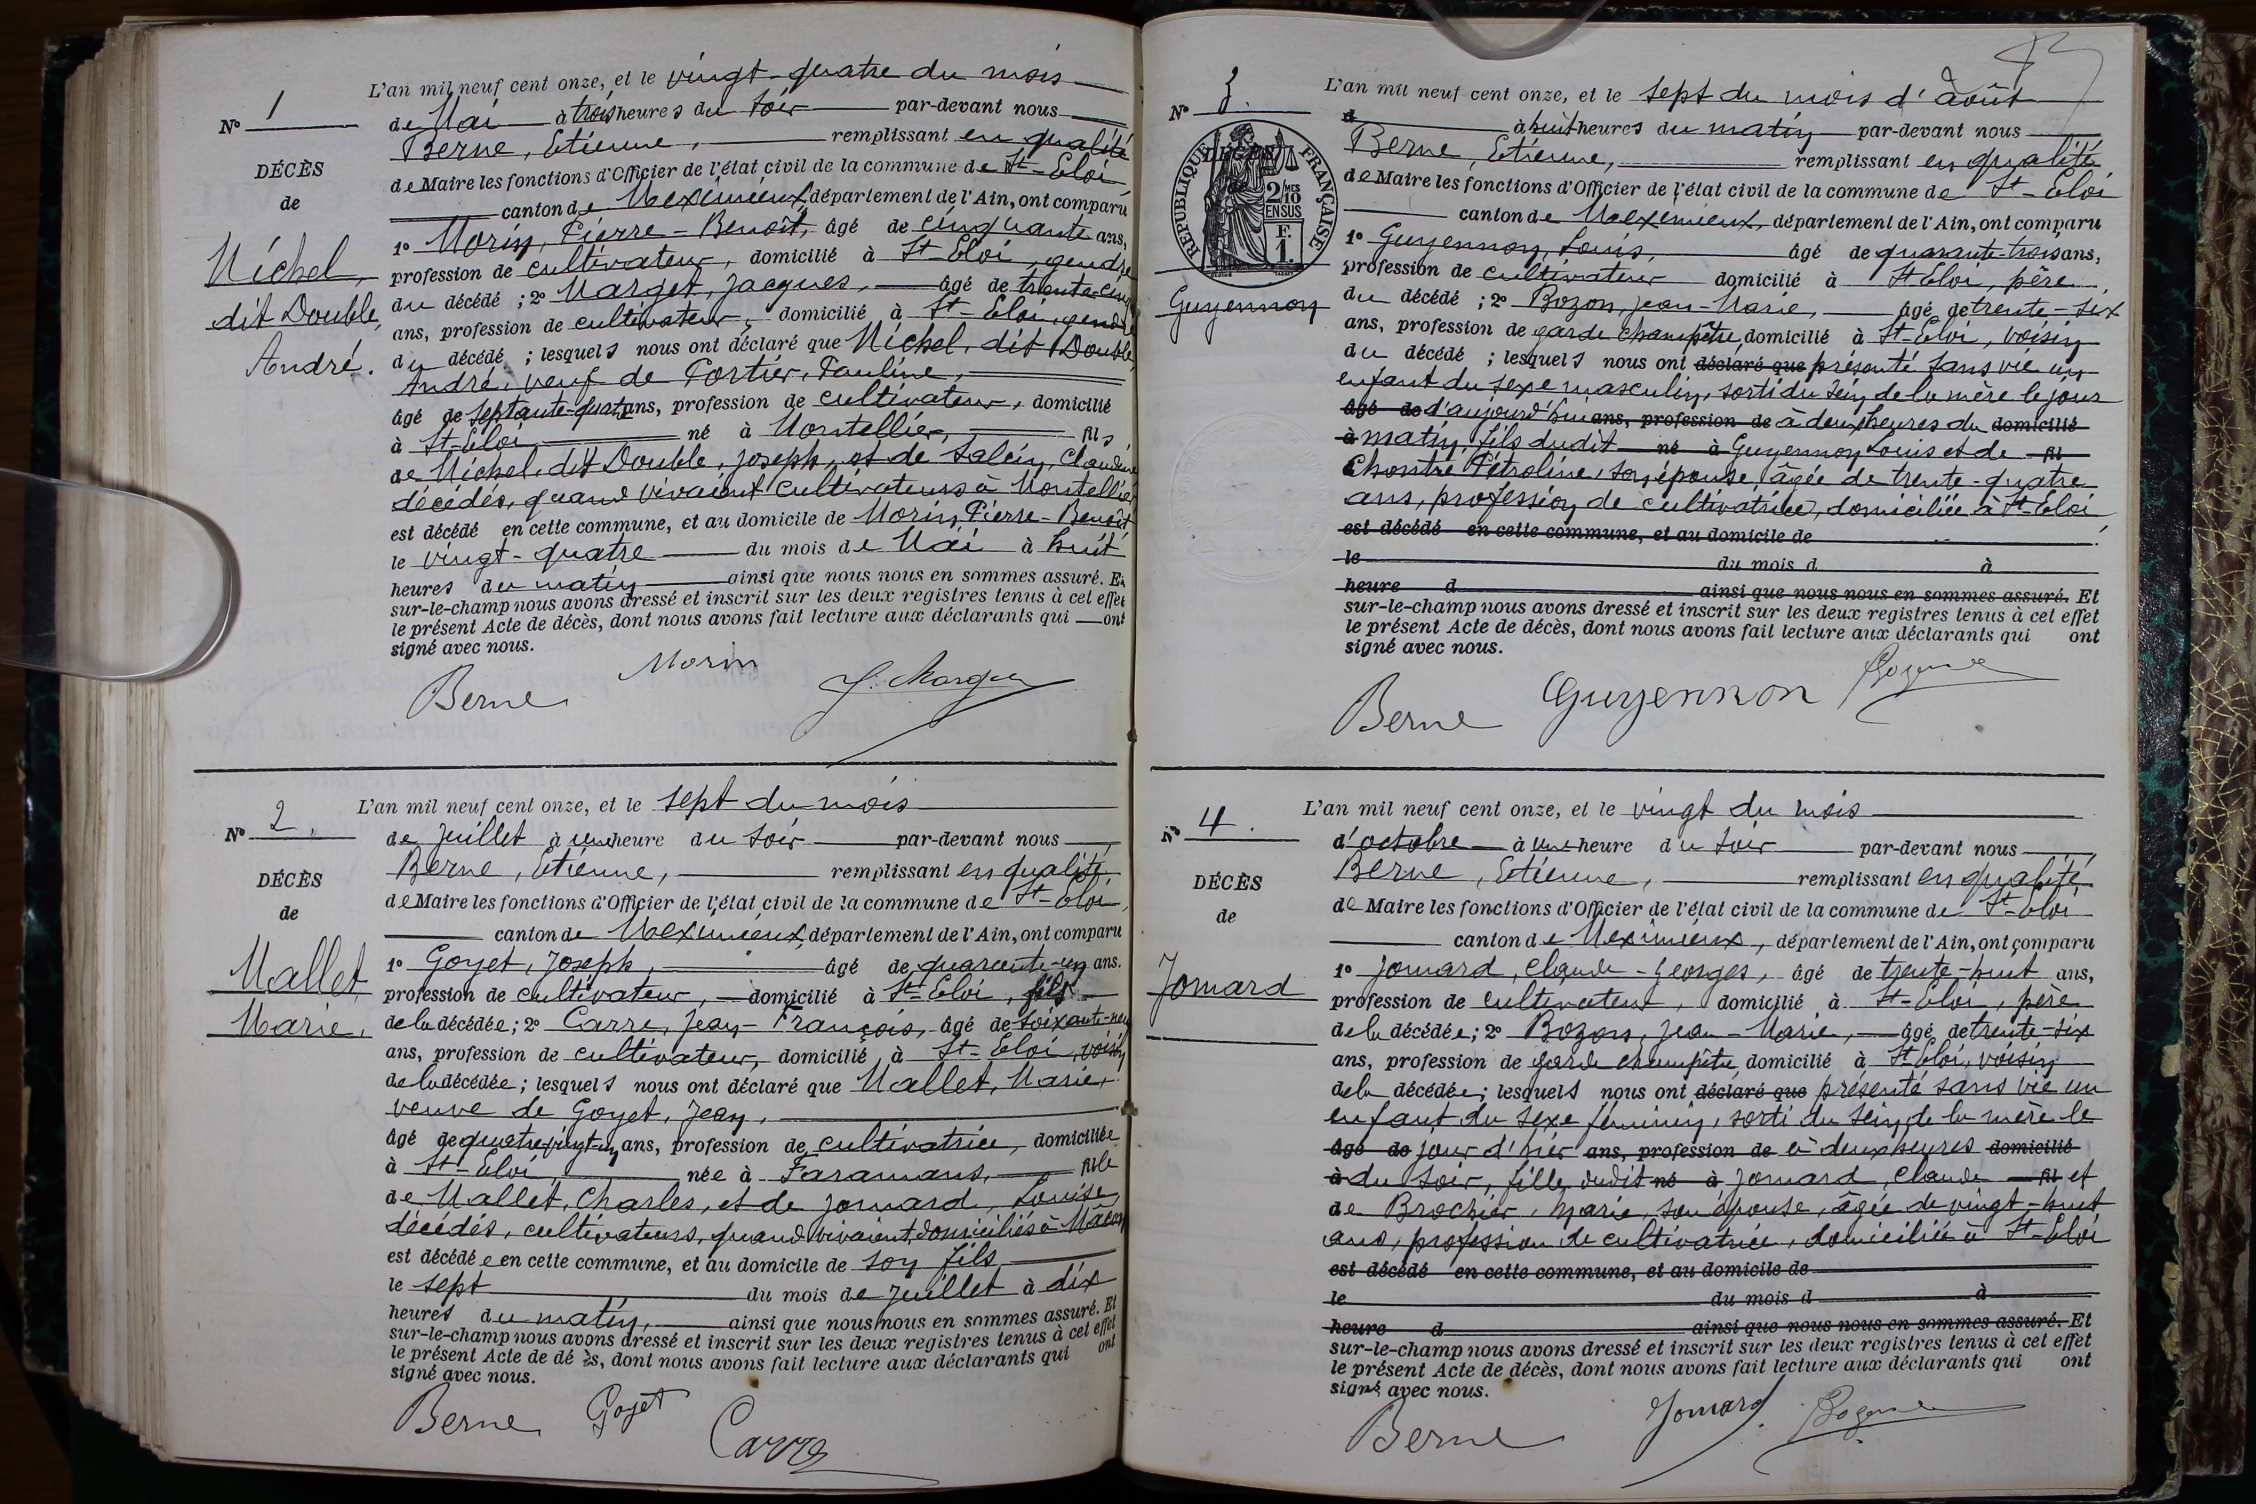 L'an mil neuf cent onze, et le vingt-quatre du mois
N° 1
de Mai à trois heures du soir par-devant nous
Berne, Etienne, remplissant en qualité
DÉCÈS
de Maire les fonctions d'Officier de l'état civil de la commune de St-Eloi,
de
canton de Meximieux, département de l'Ain, ont comparu
1° Morin, Pierre-Benoît, âgé de cinquante ans,
Michel,
profession de cultivateur, domicilié à St-Eloi, gendre
dit Double,
du décédé ; 2° Marget, Jacques, âgé de trente-cinq
ans, profession de cultivateur, domicilié à St-Eloi, gendre
André.
du décédé ; lesquels nous ont déclaré que Michel, dit Double,
André, veuf de Portier, Pauline,
âgé de septante-quatre ans, profession de cultivateur, domicilié
à St-Eloi, né à Montellier, fils
de Michel, dit Double, Joseph, et de Salein, Claudine
décédés, quand vivaient cultivateurs à Montellier
est décédé en cette commune, et au domicile de Morin, Pierre-Benoît
le vingt-quatre du mois de Mai à huit
heures du matin ainsi que nous nous en sommes assuré. Et
sur-le-champ nous avons dressé et inscrit sur les deux registres tenus à cet effet
le présent Acte de décès, dont nous avons fait lecture aux déclarants qui ont
signé avec nous.
Berne Morin J. Marget
L'an mil neuf cent onze, et le sept du mois
N° 2.
de Juillet à une heure du soir par-devant nous
Berne, Etienne, remplissant en qualité
DÉCÈS
de Maire les fonctions d'Officier de l'état civil de la commune de St-Eloi,
de
canton de Meximieux, département de l'Ain, ont comparu
Mallet,
1° Goyet, Joseph, âgé de quarante-un ans.
profession de cultivateur, domicilié à St-Eloi, fils
Marie.
de la décédée ; 2° Carre, Jean-François, âgé de soixante-neuf
ans, profession de cultivateur, domicilié à St-Eloi, voisin
de la décédée ; lesquels nous ont déclaré que Mallet, Marie,
veuve de Goyet, Jean,
âgé de quatre-vingt-un ans, profession de cultivatrice, domiciliée
à St-Eloi, née à Faramans, fille
de Mallet, Charles, et de Jomard, Louise,
décédés, cultivateurs, quand vivaient, domiciliés à Mâcon,
est décédée en cette commune, et au domicile de son fils
le sept du mois de Juillet à dix
heures du matin, ainsi que nous nous en sommes assuré. Et
sur-le-champ nous avons dressé et inscrit sur les deux registres tenus à cet effet
le présent Acte de dé ès, dont nous avons fait lecture aux déclarants qui ont
signé avec nous.
Berne Goyet Carre
L'an mil neuf cent onze, et le sept du mois d'Août
N° 3.
d à huit heures du matin par-devant nous
RÉPUBLIQUE FRANÇAISE
DÉCÈS
de
2/10 MES
EN SUS
F.
1.
Berne, Etienne, remplissant en qualité
de Maire les fonctions d'Officier de l'état civil de la commune de St-Eloi
canton de Meximieux, département de l'Ain, ont comparu
1° Guyennon, Louis, âgé de quarante-trois ans,
profession de cultivateur domicilié à St Eloi, père
Guyennon
du décédé ; 2° Bozon, Jean-Marie, âgé de trente-six
ans, profession de garde champêtre, domicilié à St-Eloi, voisin
du décédé ; lesquels nous ont déclaré que présenté sans vie un
enfant du sexe masculin, sorti du sein de la mère le jour
âgé de d'aujourd'hui ans, profession de à deux heures du domicilié
à matin, fils dudit né à Guyennon Louis et de fil
Chontre Pétroline, son épouse, âgée de trente-quatre
ans, profession de cultivatrice, domiciliée à St-Eloi
est décédé en cette commune, et au domicile de
le du mois d à
heure d ainsi que nous nous en sommes assuré. Et
sur-le-champ nous avons dressé et inscrit sur les deux registres tenus à cet effet
le présent Acte de décès, dont nous avons fait lecture aux déclarants qui ont
signé avec nous.
Berne Guyennon Bozon
L'an mil neuf cent onze, et le vingt du mois
N° 4.
d'octobre à une heure du soir par-devant nous
Berne, Etienne, remplissant en qualité
DÉCÈS
de Maire les fonctions d'Officier de l'état civil de la commune de St-Eloi
de
canton de Meximieux, département de l'Ain, ont comparu
Jomard
1° Jomard, Claude-Georges, âgé de trente-huit ans,
profession de cultivateur, domicilié à St-Eloi, père
de la décédée ; 2° Bozon, Jean-Marie, âgé de trente-six
ans, profession de garde champêtre, domicilié à St Eloi, voisin
de la décédée ; lesquels nous ont déclaré que présenté sans vie un
enfant du sexe féminin, sorti du sein de la mère le
âgé de jour d'hier ans, profession de à deux heures domicilié
à du soir, fille dudit né à Jomard, Claude fil et
de Brochier, Marie, son épouse, âgée de vingt-huit
ans, profession de cultivatrice, domiciliée à St-Eloi
est décédé en cette commune, et au domicile de
le du mois d à
heure d ainsi que nous nous en sommes assuré. Et
sur-le-champ nous avons dressé et inscrit sur les deux registres tenus à cet effet
le présent Acte de décès, dont nous avons fait lecture aux déclarants qui ont
signé avec nous.
Berne Jomard Bozon